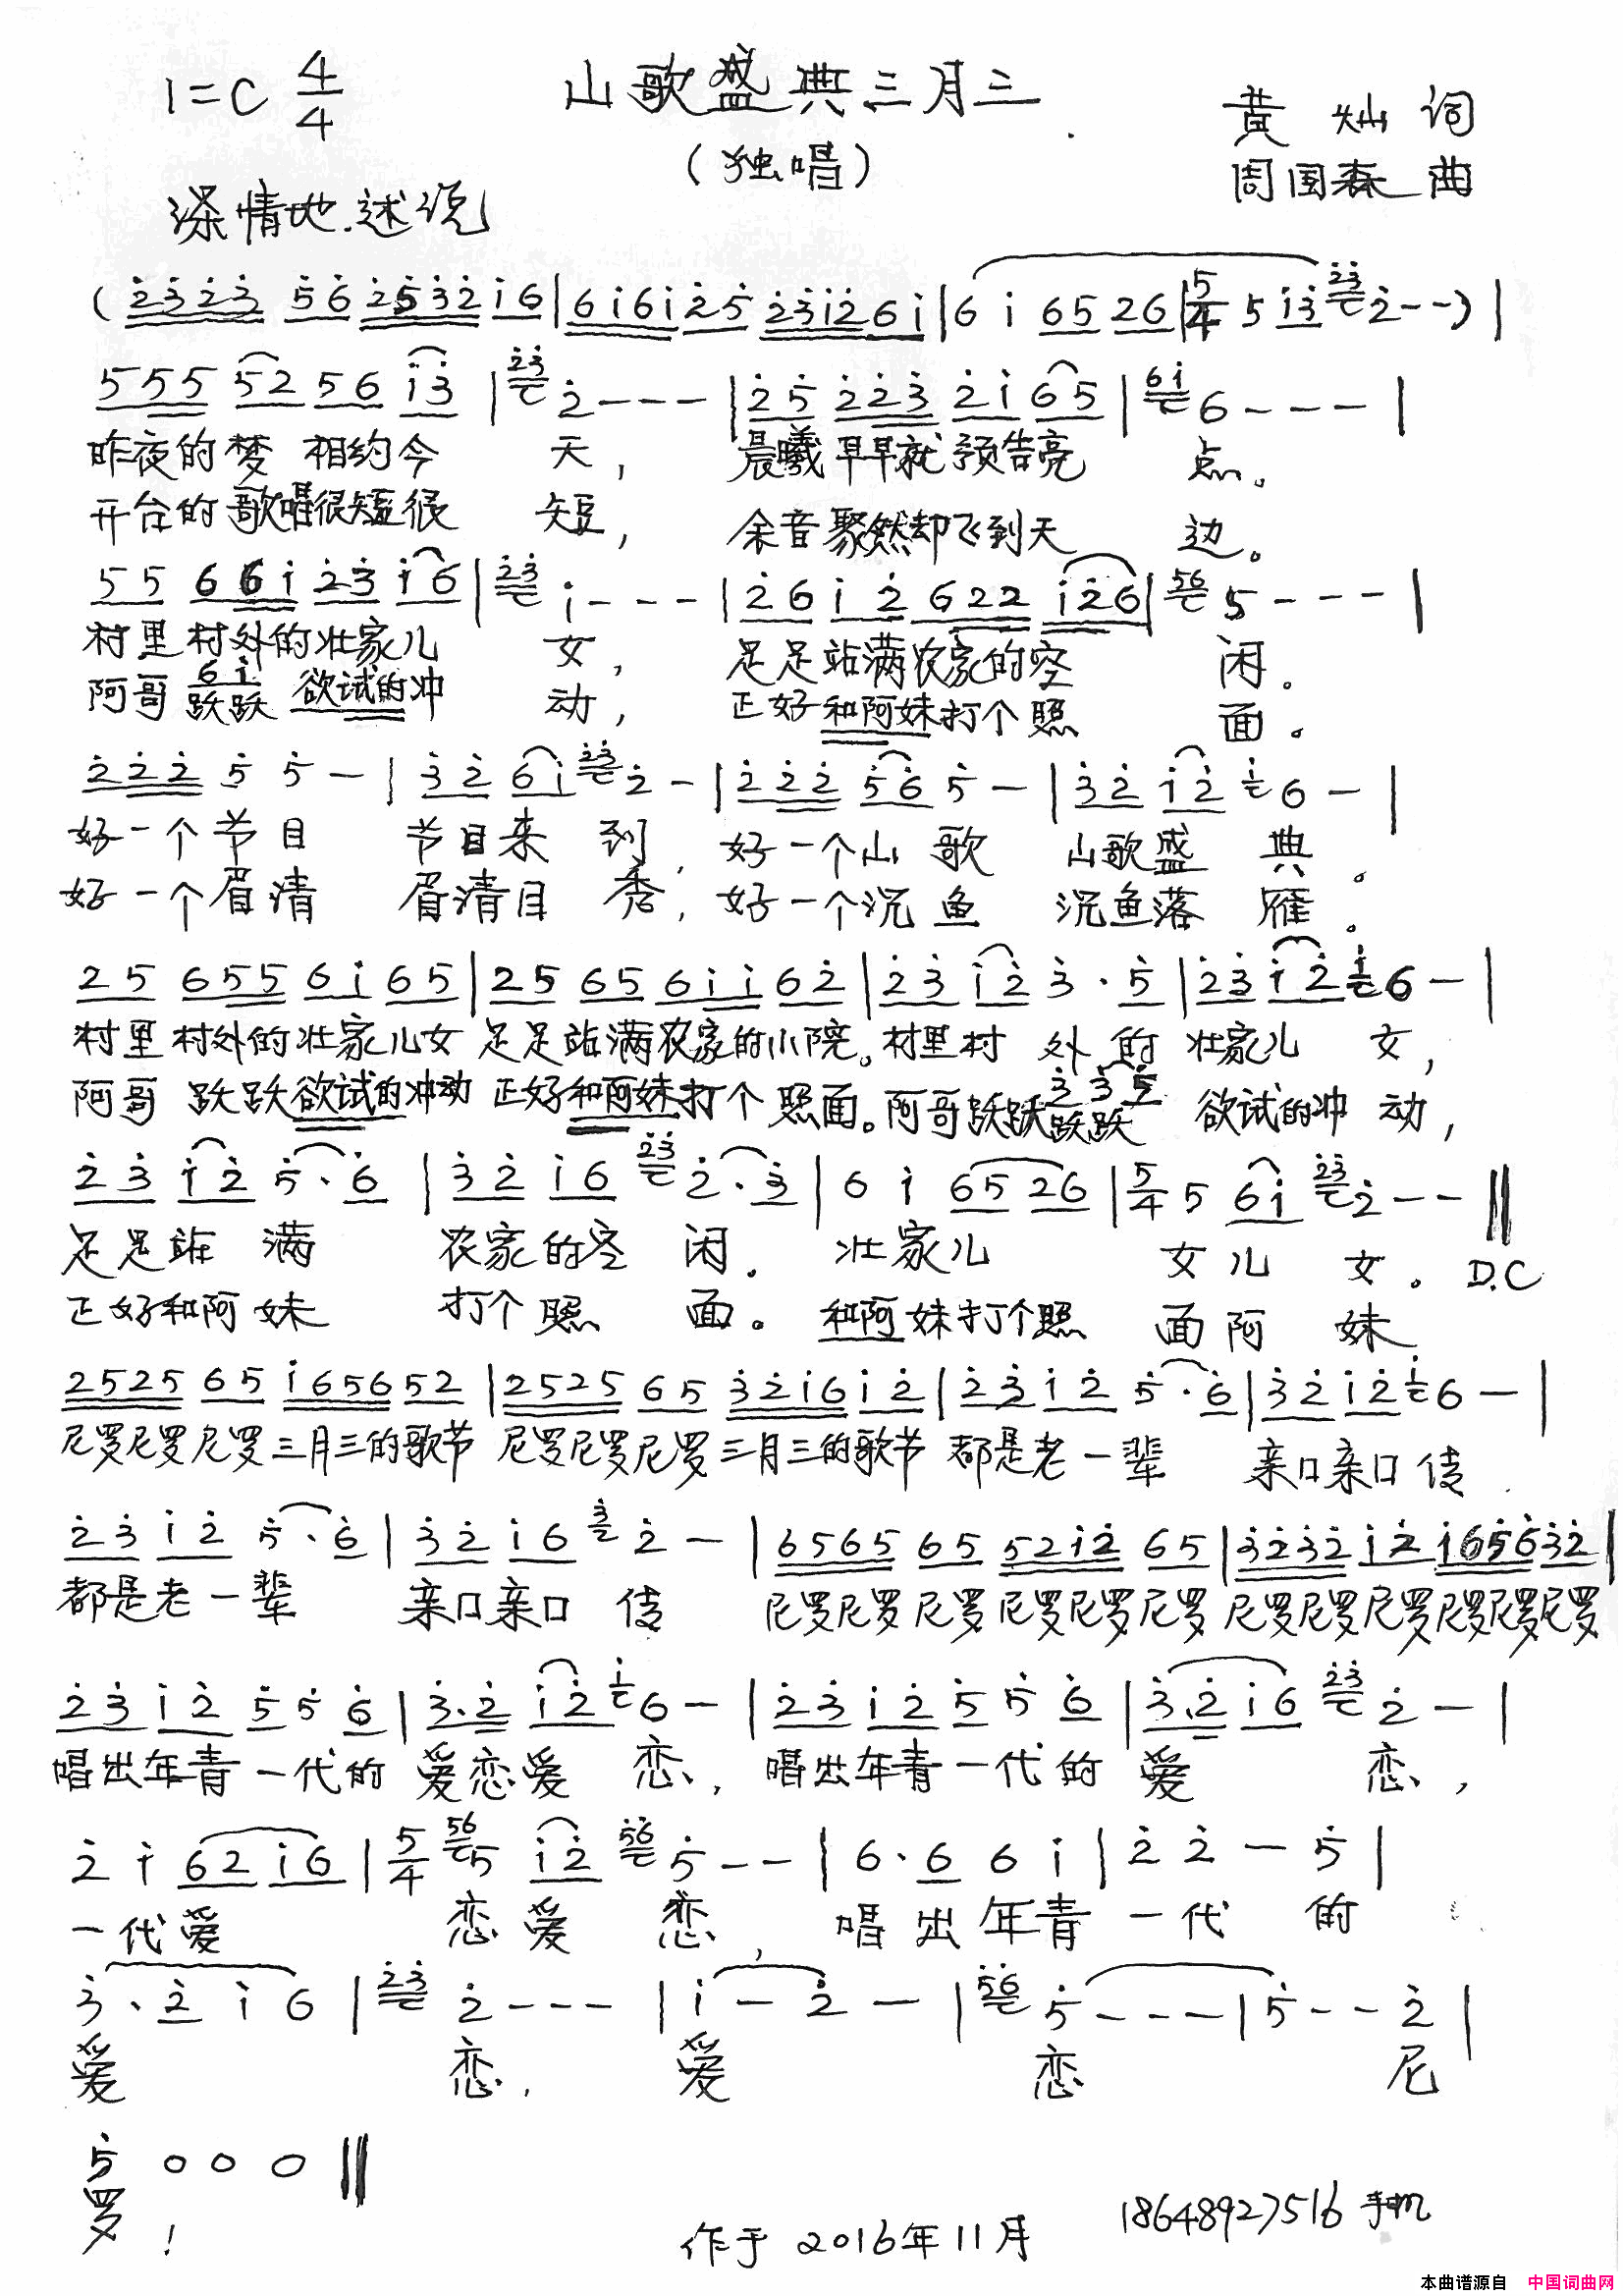 1=C 4/4 山歌盛典三月三 黄灿词
(独唱) 周国森曲
深情地.述说
(2̇3̇2̇3̇ 5̇6̇ 2̇5̇3̇2̇ i6|6i6i 2̇5̇ 2̇3̇i2̇ 6i|6 i 65 26|5/4 5 i3̇ 2̇3̇ 2̇--)|
555 52 56 i3̇|2̇3̇ 2̇---|2̇5̇ 2̇2̇3̇ 2̇i 65|6i 6---|
昨夜的梦 相约今 天, 晨曦早早就预告亮 点。
开台的歌唱很短很 短, 余音聚然却飞到天 边。
55 66i 2̇3̇ i6|2̇3̇ i---|2̇6 i2̇ 622 i2̇6|56 5---|
村里村外的壮家儿 女, 足足站满农家的空 闲.
6i
阿哥跃跃欲试的冲 动, 正好和阿妹打个照 面。
2̇2̇2̇ 5̇ 5̇ -|3̇2̇ 6i 2̇3̇ 2̇-|2̇2̇2̇ 5̇6̇ 5̇ -|3̇2̇ i2̇ i 6-|
好一个节目 节目来 到, 好一个山歌 山歌盛 典。
好一个眉清 眉清目 秀, 好一个沉鱼 沉鱼落 雁。
25 655 6i 65|25 65 6ii 62̇|2̇3̇ i2̇ 3̇.5̇|2̇3̇ i2̇ i 6-|
村里村外的壮家儿女 足足站满农家的小院。村里村外的 壮家儿 女,
3̇ 3̇5̇
阿哥 跃跃欲试的冲动 正好和阿妹打个照面。阿哥跃跃跃跃 欲试的冲 动,
2̇3̇ i2̇ 5̇.6̇|3̇2̇ i6 2̇3̇ 2̇.3̇|6 i 65 26|5/4 5 6i 2̇3̇ 2̇--‖
足足站 满 农家的空 闲. 壮家儿 女儿 女。D.C
正好和阿妹 打个照 面。和阿妹打个照 面阿 妹
2525 65 i656 52|2525 65 3̇2̇i6 i2̇|2̇3̇ i2̇ 5̇.6̇|3̇2̇ i2̇ i 6-|
尼罗尼罗尼罗三月三的歌节 尼罗尼罗尼罗三月三的歌节 都是老一辈 亲口亲口传
2̇3̇ i2̇ 5̇.6̇|3̇2̇ i6 3̇ 2̇-|6565 65 52i2̇ 65|3̇2̇3̇2̇ i2̇ i65̇6̇ 3̇2̇|
都是老一辈 亲口亲口 传 尼罗尼罗尼罗尼罗尼罗尼罗 尼罗尼罗尼罗尼罗尼罗尼罗
2̇3̇ i2̇ 5̇ 5̇ 6̇|3̇.2̇ i2̇ i 6-|2̇3̇ i2̇ 5̇ 5̇ 6̇|3̇.2̇ i6 2̇3̇ 2̇-|
唱出年青一代的 爱恋爱 恋, 唱出年青一代的 爱 恋,
2̇ i 62 i6|5/4 56 5 i2̇ 5̇6̇ 5̇--|6.6 6 i|2̇ 2̇ - 5̇|
一代爱 恋爱 恋, 唱出年青一代 的
3̇.2̇ i 6|2̇3̇ 2̇---|i-2̇-|5̇6̇ 5̇---|5̇--2̇|
爱 恋, 爱 恋 尼
5̇ 0 0 0‖
罗!
作于2016年11月 18648927516手机
本曲谱源自 中国词曲网